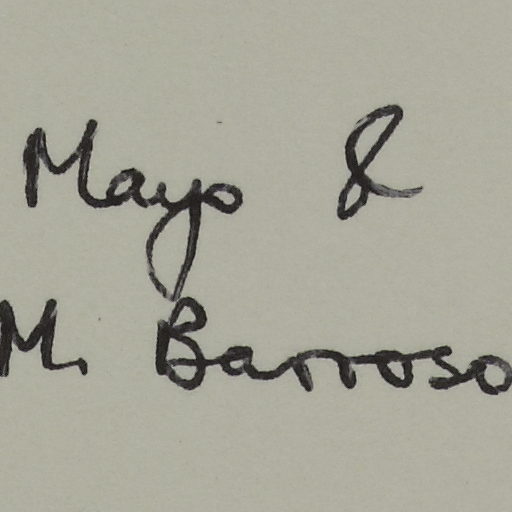 Mayo &
M. Barroso